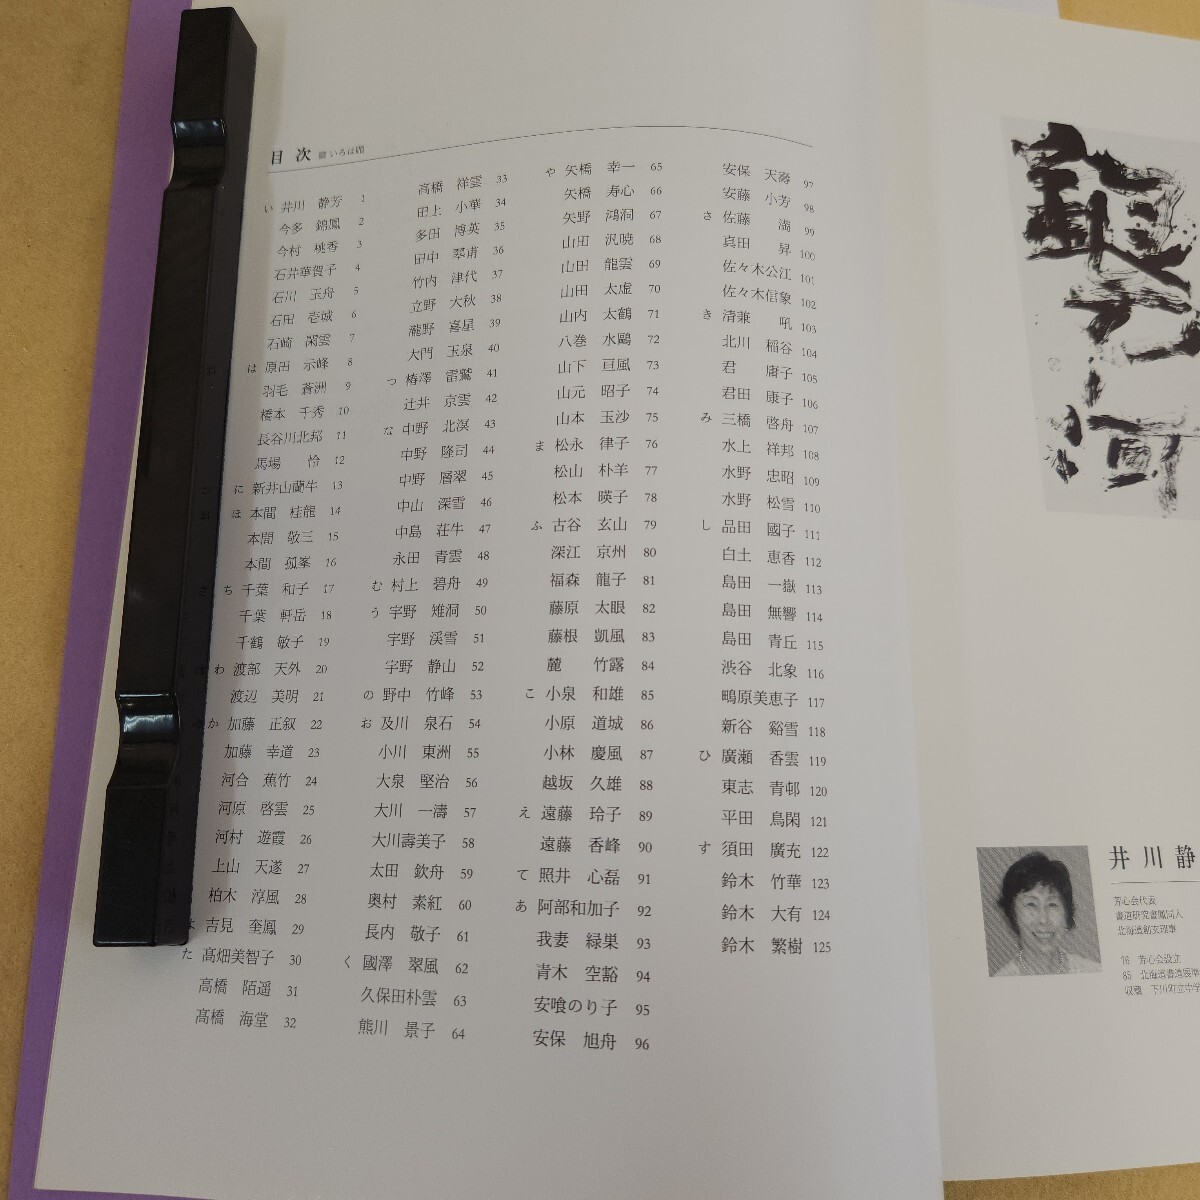 目次 ■いろは順
い 井川 静芳 1
今多 錦鳳 2
今村 桃香 3
石井華賀子 4
石川 玉舟 5
石田 壱城 6
石崎 閑雲 7
は 原田 示峰 8
羽毛 蒼洲 9
橋本 千秀 10
長谷川北邦 11
馬場 怜 12
に 新井山蘭牛 13
ほ 本間 桂龍 14
本間 敬三 15
本間 孤峯 16
ち 千葉 和子 17
千葉 軒岳 18
千鶴 敏子 19
わ 渡部 天外 20
渡辺 美明 21
か 加藤 正叙 22
加藤 幸道 23
河合 蕉竹 24
河原 啓雲 25
河村 遊霞 26
上山 天遂 27
柏木 淳風 28
よ 吉見 奎鳳 29
た 髙畑美智子 30
高橋 陌遥 31
髙橋 海堂 32
高橋 祥雲 33
田上 小華 34
多田 博英 35
田中 翠甫 36
竹内 津代 37
立野 大秋 38
瀧野 喜星 39
大門 玉泉 40
つ 椿澤 雷鷲 41
辻井 京雲 42
な 中野 北溟 43
中野 隆司 44
中野 層翠 45
中山 深雪 46
中島 荘牛 47
永田 青雲 48
む 村上 碧舟 49
う 宇野 雉洞 50
宇野 渓雪 51
宇野 静山 52
の 野中 竹峰 53
お 及川 泉石 54
小川 東洲 55
大泉 堅治 56
大川 一濤 57
大川壽美子 58
太田 欽舟 59
奥村 素紅 60
長内 敬子 61
く 國澤 翠風 62
久保田朴雲 63
熊川 景子 64
や 矢橋 幸一 65
矢橋 寿心 66
矢野 鴻洞 67
山田 汎暁 68
山田 龍雲 69
山田 太虚 70
山内 太鶴 71
八巻 水鷗 72
山下 亘風 73
山元 昭子 74
山本 玉沙 75
ま 松永 律子 76
松山 朴羊 77
松本 暎子 78
ふ 古谷 玄山 79
深江 京州 80
福森 龍子 81
藤原 太眼 82
藤根 凱風 83
麓 竹露 84
こ 小泉 和雄 85
小原 道城 86
小林 慶風 87
越坂 久雄 88
え 遠藤 玲子 89
遠藤 香峰 90
て 照井 心磊 91
あ 阿部和加子 92
我妻 緑巣 93
青木 空豁 94
安喰のり子 95
安保 旭舟 96
安保 天壽 97
安藤 小芳 98
さ 佐藤 満 99
真田 昇 100
佐々木公江 101
佐々木信象 102
き 清兼 吼 103
北川 稲谷 104
君 庸子 105
君田 康子 106
み 三橋 啓舟 107
水上 祥邦 108
水野 忠昭 109
水野 松雪 110
し 品田 國子 111
白土 恵香 112
島田 一嶽 113
島田 無響 114
島田 青丘 115
渋谷 北象 116
鴫原美恵子 117
新谷 谿雪 118
ひ 廣瀬 香雲 119
東志 青邨 120
平田 鳥閑 121
す 須田 廣充 122
鈴木 竹華 123
鈴木 大有 124
鈴木 繁樹 125
井川静
芳心会代表
書道研究書鳳同人
北海道創玄理事
芳心会設立
85 北海道書道展準
収蔵 下川町立中学